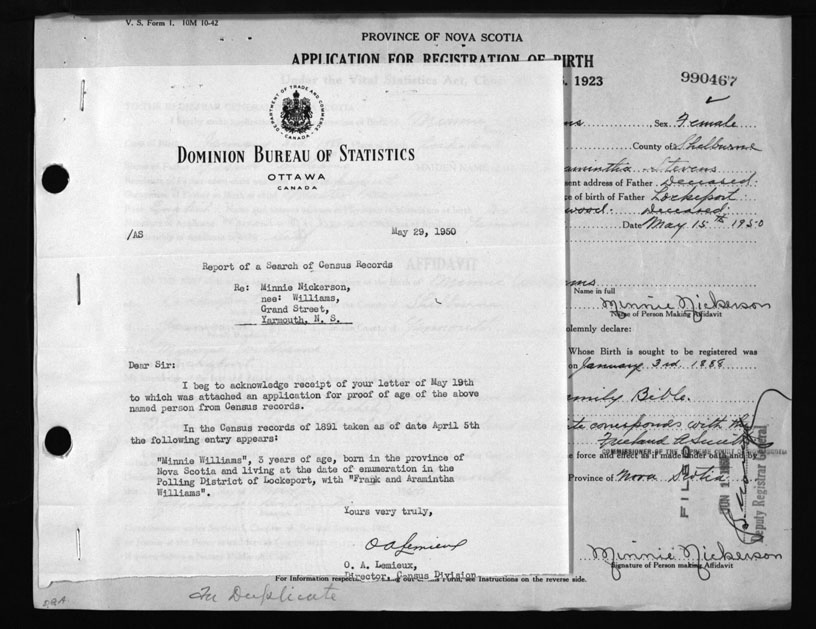 V. S. Form 1. 10M 10-42
PROVINCE OF NOVA SCOTIA
APPLICATION FOR REGISTRATION OF BIRTH
1923
990467
Sex Female
County of Shelburne
Stevens
sent address of Father Deceased
e of birth of Father Lockeport
wood. Deceased
Date May 15th 1950
Name in full
Minnie Nickerson
Name of Person Making Affidavit
olemnly declare:
Whose Birth is sought to be registered was
on January 3rd, 1888
amily Bible.
te corresponds with the
e force and effect as if made under oath and by
Province of Nova Scotia
FILED
Deputy Registrar General
Minnie Nickerson
Signature of Person making Affidavit
DEPARTMENT OF TRADE AND COMMERCE
CANADA
DOMINION BUREAU OF STATISTICS
OTTAWA
CANADA
/AS
May 29, 1950
Report of a Search of Census Records
Re: Minnie Nickerson,
nee: Williams,
Grand Street,
Yarmouth, N. S.
Dear Sir:
I beg to acknowledge receipt of your letter of May 19th
to which was attached an application for proof of age of the above
named person from Census records.
In the Census records of 1891 taken as of date April 5th
the following entry appears:
"Minnie Williams", 3 years of age, born in the province of
Nova Scotia and living at the date of enumeration in the
Polling District of Lockeport, with "Frank and Aramintha
Williams".
Yours very truly,
O A Lemieux
O. A. Lemieux,
Director, Census Division
For Information respec
out Form, see Instructions on the reverse side.
In Duplicate